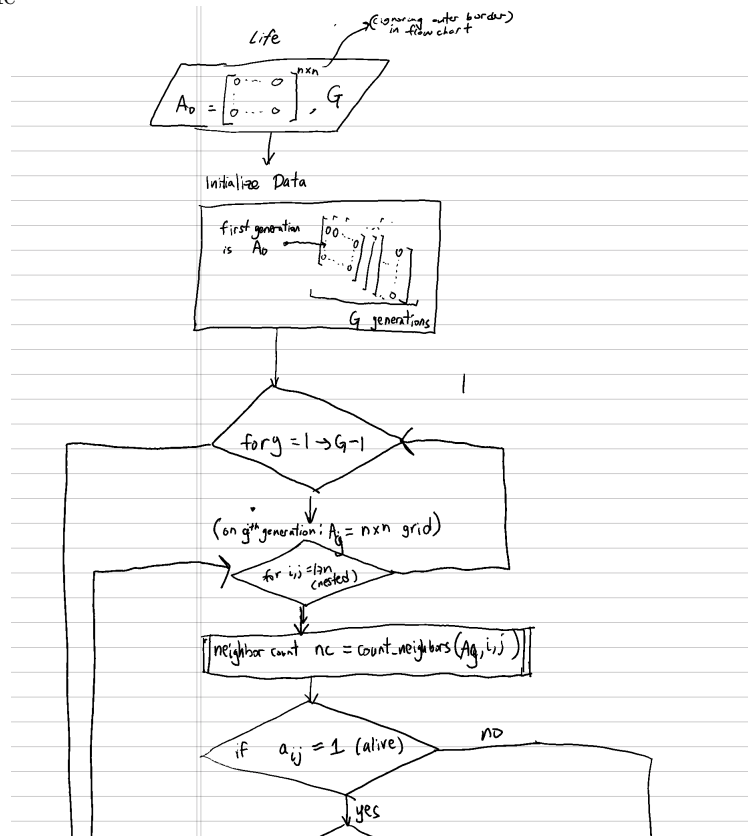 Life
(ignoring outer border)
in flow chart
A₀ = [0 ... 0
0 ... 0]ⁿˣⁿ , G
Initialize Data
first generation
is A₀
00
0
0
0
0
0
G generations
for g = 1 → G-1
(on gᵗʰ generation: A_g = n×n grid)
for i,j = 1→n
(nested)
neighbor count nc = count_neighbors(Ag,i,j)
if a_ij = 1 (alive)
no
yes